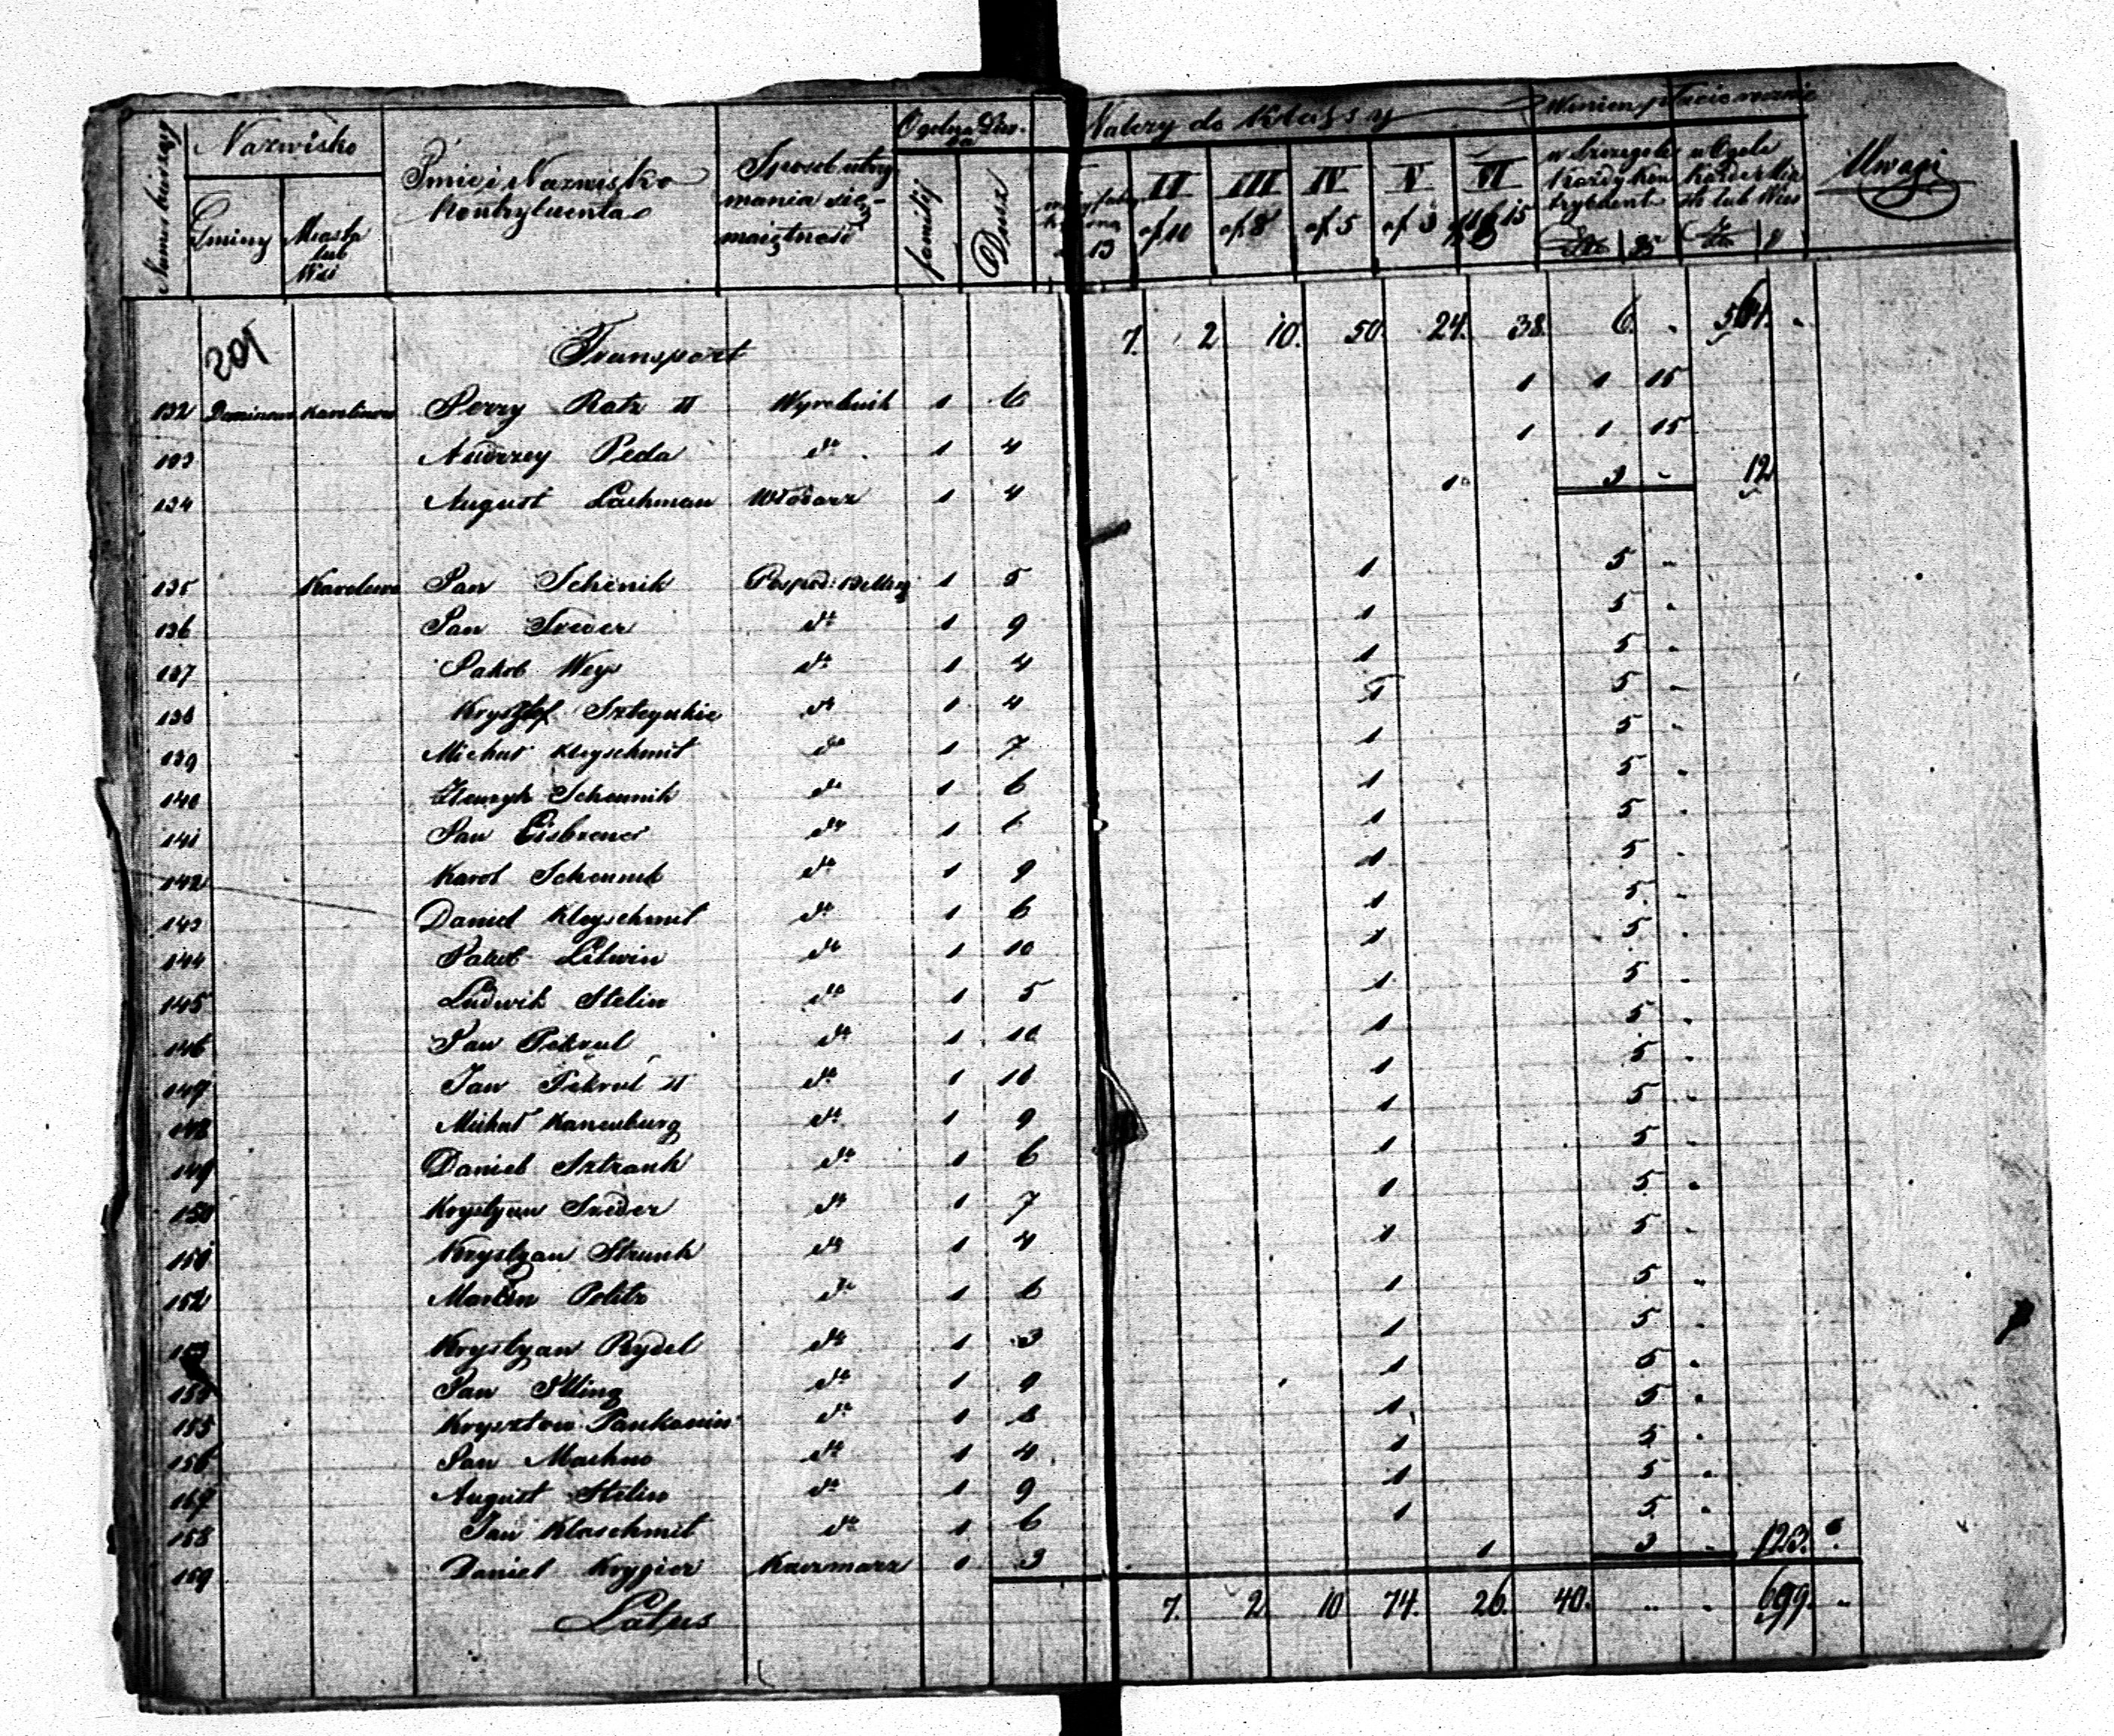 Nazwisko
Gminy
Miasta lub Wsi
Jmie i Nazwisko Kontrybuenta
Sposób utrzymania się
Ogólna
familij
Dusz
Należy do Klassy
II
III
IV
V
VI
zł 10
zł 8
zł 5
zł 3
w Szczególe każdy Kon
w Ogóle
lub Wieś
Uwagi
201
Transport 7. 2 10. 50 24. 38. 6. "
132 Karolinow Jerzy Ratz II Wyrobnik 1 6 1 1 15
133 Andrzey Peda dto 1 4 1 1 15
134 August Lachman Włodarz 1 4 1 3 - 12
135 Karolewo Jan Schönik 1 5 1 5 "
136 Jan Szeder dto 1 9 1 5 "
137 Jakob Wey dto 1 4 1 5 "
138 dto 1 4 1 5 "
139 Michał Kleyschmit dto 1 7 1 5 "
140 Henryk Schonnik dto 1 6 1 5 "
141 Jan dto 1 1 5 "
142 Karol Schonnik dto 1 9 1 5 "
143 Daniel Kleyschmit dto 1 6 1 5 "
144 Litwin dto 1 10 1 5 "
145 Ludwik Stelin dto 1 5 1 5 "
146 Jan Pekrul dto 1 10 1 5 "
147 Jan Pekrul II dto 1 10 1 5 "
148 Michał Kanenburg dto 1 9 1 5 "
149 Daniel Sztrank dto 1 6 1 5 "
150 Krystyan Szeder dto 1 7 1 5 "
151 Krystyan Strunk dto 1 4 1 5 "
152 Marcin Politz dto 1 6 1 5 "
153 Krystyan Rydel dto 1 3 1 5 "
154 Jan dto 1 9 1 5 "
155 dto 1 8 1 5 "
156 Jan Machno dto 1 4 1 5 "
157 August Stelin dto 1 9 1 5 "
158 Jan Klaschmit dto 1 6 1 5 "
159 Daniel Krygier Karczmarz 1 3 1 3 " 123.
Latus 7. 2 10 74. 26. 40. " " 699. "